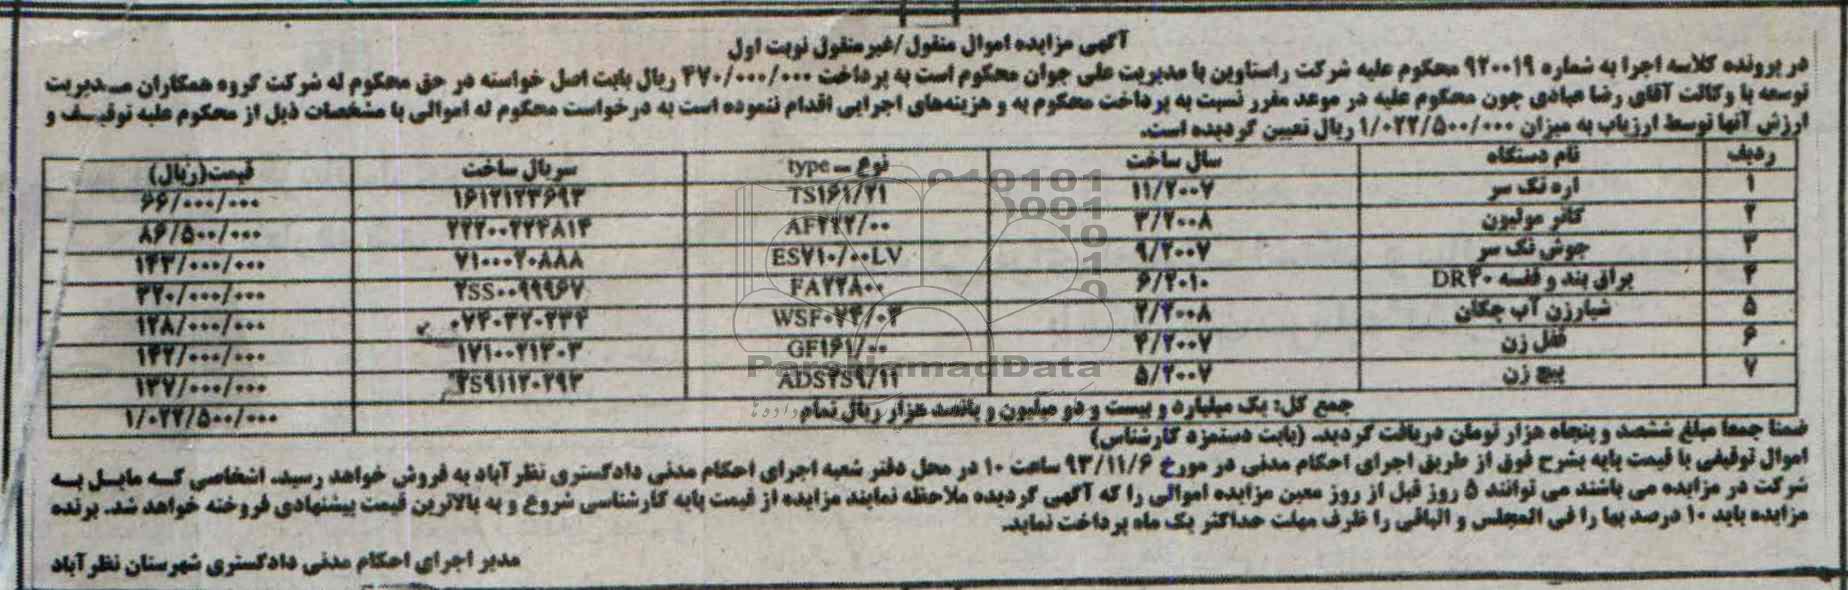 آگهی مزایده اموال منقول/غیرمنقول نوبت اول
در پرونده کلاسه اجرا به شماره ۹۲۰۰۱۹ محکوم علیه شرکت راستاوین با مدیریت علی جوان محکوم است به پرداخت ۴۷۰/۰۰۰/۰۰۰ ریال بابت اصل خواسته در حق محکوم له شرکت گروه همکاران مدیریت
توسعه با وکالت آقای رضا عبادی چون محکوم علیه در موعد مقرر نسبت به پرداخت محکوم به و هزینه‌های اجرایی اقدام ننموده است به درخواست محکوم له اموالی با مشخصات ذیل از محکوم علیه توقیف و
ارزش آنها توسط ارزیاب به میزان ۱/۰۲۲/۵۰۰/۰۰۰ ریال تعیین گردیده است.
ردیف نام دستگاه سال ساخت نوع - type سریال ساخت قیمت(ریال)
۱ اره تک سر ۱۱/۲۰۰۷ TS۱۶۱/۲۱ ۱۶۱۲۱۲۳۶۹۳ ۶۶/۰۰۰/۰۰۰
۲ کاتر مولیون ۳/۲۰۰۸ AF۲۲۲/۰۰ ۲۲۲۰۰۲۲۴۸۱۴ ۸۶/۵۰۰/۰۰۰
۳ جوش تک سر ۹/۲۰۰۷ ES۷۱۰/۰۰LV ۷۱۰۰۰۲۰۸۸۸ ۱۴۳/۰۰۰/۰۰۰
۴ یراق بند و قفسه DR۳۰ ۶/۲۰۱۰ FA۲۲۸۰۰ ۲SS۰۰۹۹۹۶۷ ۳۲۰/۰۰۰/۰۰۰
۵ شیارزن آب چکان ۲/۲۰۰۸ WSF۰۷۴/۰۳ ۰۷۴۰۳۲۰۲۳۴ ۱۲۸/۰۰۰/۰۰۰
۶ قفل زن ۴/۲۰۰۷ GF۱۶۱/۰۰ ۱۷۱۰۰۲۱۳۰۳ ۱۴۲/۰۰۰/۰۰۰
۷ پیچ زن ۵/۲۰۰۷ ADS۲S۹/۱۱ ۲S۹۱۱۲۰۲۹۳ ۱۳۷/۰۰۰/۰۰۰
جمع کل: یک میلیارد و بیست و دو میلیون و پانصد هزار ریال تمام ۱/۰۲۲/۵۰۰/۰۰۰
ضمنا جمعا مبلغ ششصد و پنجاه هزار تومان دریافت گردید. (بابت دستمزد کارشناس)
اموال توقیفی با قیمت پایه بشرح فوق از طریق اجرای احکام مدنی در مورخ ۹۳/۱۱/۶ ساعت ۱۰ در محل دفتر شعبه اجرای احکام مدنی دادگستری نظرآباد به فروش خواهد رسید. اشخاصی که مایل به
شرکت در مزایده می باشند می توانند ۵ روز قبل از روز معین مزایده اموالی را که آگهی گردیده ملاحظه نمایند مزایده از قیمت پایه کارشناسی شروع و به بالاترین قیمت پیشنهادی فروخته خواهد شد. برنده
مزایده باید ۱۰ درصد بها را فی المجلس و الباقی را ظرف مهلت حداکثر یک ماه پرداخت نماید.
مدیر اجرای احکام مدنی دادگستری شهرستان نظرآباد